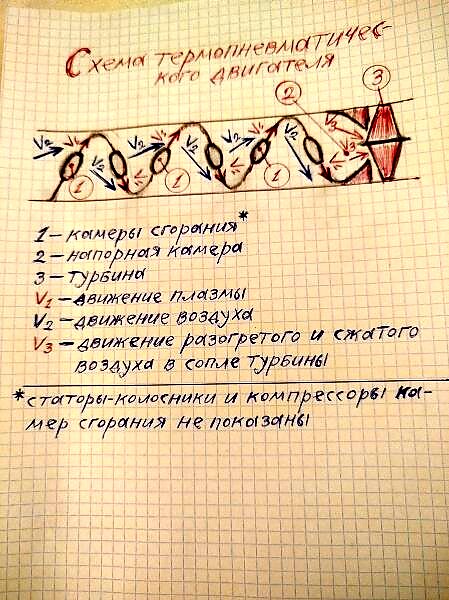 Схема термопневматичес-
кого двигателя
2
3
V₃
V₂ V₁ V₂ V₁ V₂ V₁ V₂ V₃
V₂ V₂ V₂
1 1 1
1 – камеры сгорания*
2 – напорная камера
3 – турбина
V₁ – движение плазмы
V₂ – движение воздуха
V₃ – движение разогретого и сжатого
воздуха в сопле турбины
*статоры-колосники и компрессоры ка-
мер сгорания не показаны